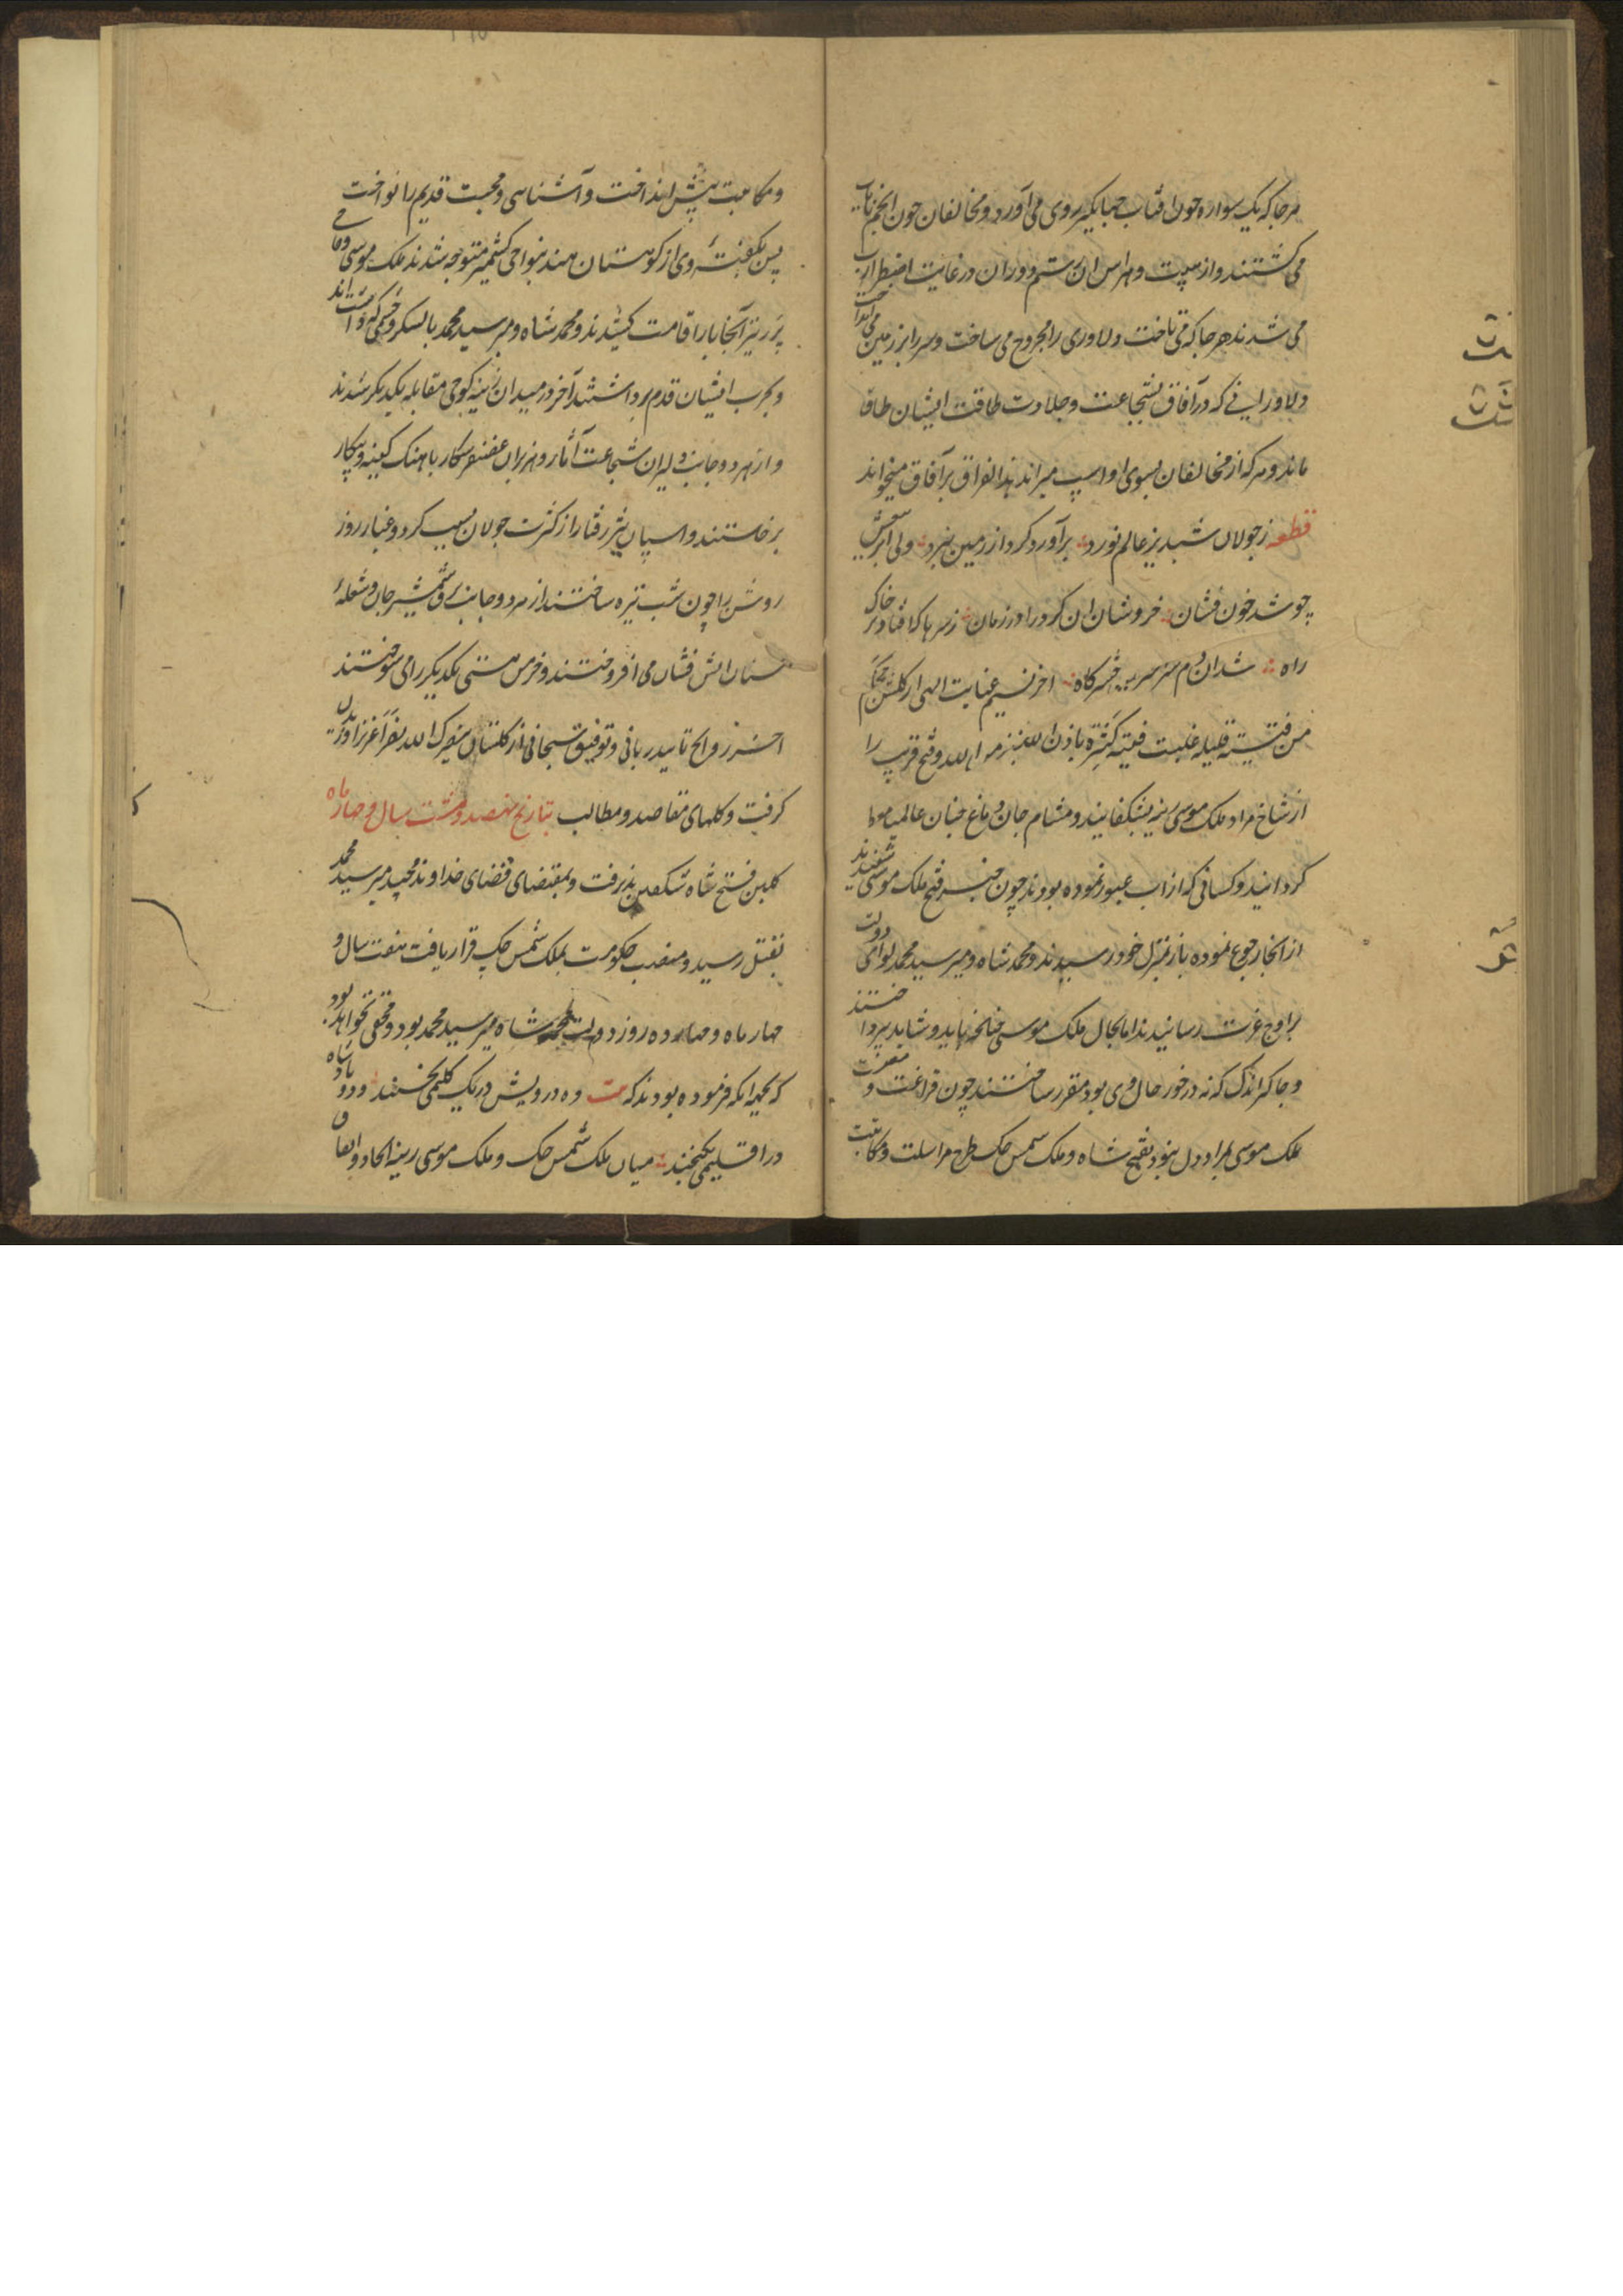 هر جا که یک سواره چون افتاب جهانگیر روی می آورد و مخالفان چون انجم نایاب
می کشتند و از هیبت و هراس ان رستم دوران در غایت اضطراب
می شدند هر جا که می تاخت دلاوری را مجروح می ساخت و سر را بر زمین می انداخت
دلاورانی که در آفاق بشجاعت و جلادت طاقت ایشان طاق
ماند و هر که از مخالفان بسوی او اسپ میراند هذا الفراق بر آفاق میخواند
قطعه ز جولان شبدیز عالم نورد برآورد کرد از زمین نبرد ولی ابر تیغش
چو شد خون فشان خروشان ان کرد را در زمان ز سرها که افتاد بر خاک
راه شد ان دم سرسر خرکاه اخر نسیم عنایت الهی از کلشن کم
من فئة قلیلة غلبت فئة کثیرة باذن الله نصر من الله و فتح قریب را
از شاخ مراد ملک موسی رینه بشکفانید و مشام جان و دماغ جنان عالمیان
کردانید و کسانی که از اب عبور نموده بودند چون خبر فتح ملک موسی شنیدند
از انجا رجوع نموده باز بمنزل خود رسیدند و محمد شاه و میر سید محمد لوای دولت
براوج عزت رسانیدند اما بحال ملک موسی چنانچه باید و شاید نپرداختند
و جاکر اندک که نه در خور حال وی بود مقرر ساختند چون فراغت و معرفت
ملک موسی بمراد دل نبود بفتح شاه و ملک شمس چک طرح مراسلت و مکاتبت
و مکاتبت پیش انداخت و آشناسی و محبت قدیم را نواخت
پس بکفته وی از کوهستان هند بنواحی کشمیر متوجه شدند ملک موسی
آنجا بار اقامت کشیدند و محمد شاه و میر سید محمد با لشکر
و بحرب ایشان قدم برداشتند آخر در میدان زینه کوحی مقابله یکدیکر شدند
و از هر دو جانب دلیران شجاعت آثار و هزبران غضنفر شکار باهنک کینه و پیکار
برخاستند و اسپان تیز رفتار از کثرت جولان بسبب کرد و غبار روز
روشن را چون شب تیره ساختند از هر دو جانب برق شمشیر جان و شعله
سنان اتش فشان می افروختند و خرمن هستی یکدیکر را می سوختند
اخر روایح تایید ربانی و توفیق سبحانی از کلستان ینصرک الله نصرا عزیزا وزیدن
کرفت و کلهای مقاصد و مطالب بتاریخ نهصد و هشت سال و چهار ماه
کلبن فتح شاه شکفتن پذیرفت و بمقتضای قضای خداوند مجید میر سید محمد
بقتل رسید و منصب حکومت بملک شمس چک قرار یافت هفت سال و
چهار ماه و چهارده روز دولت محمد شاه میر سید محمد بود و مخفی نخواهد بود
که بجهة انکه فرموده بودند که بیت ده درویش در یک کلیمی بخسپند و دو پادشاه
در اقلیمی نکنجند میان ملک شمس چک و ملک موسی رینه اتحاد و اتفاق